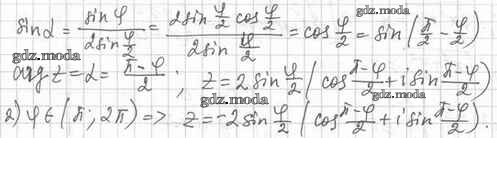 sin α = sin φ / 2sin φ/2 = 2sin φ/2 cos φ/2 / 2sin φ/2 = cos φ/2 = sin (π/2 - φ/2)
gdz.moda gdz.moda gdz.moda
arg z = α = π-φ/2 ; z = 2 sin φ/2 ( cos π-φ/2 + i sin π-φ/2 )
gdz.moda gdz.moda
2) φ ∈ ( π ; 2π ) => z = -2 sin φ/2 ( cos π-φ/2 + i sin π-φ/2 ).
gdz.moda